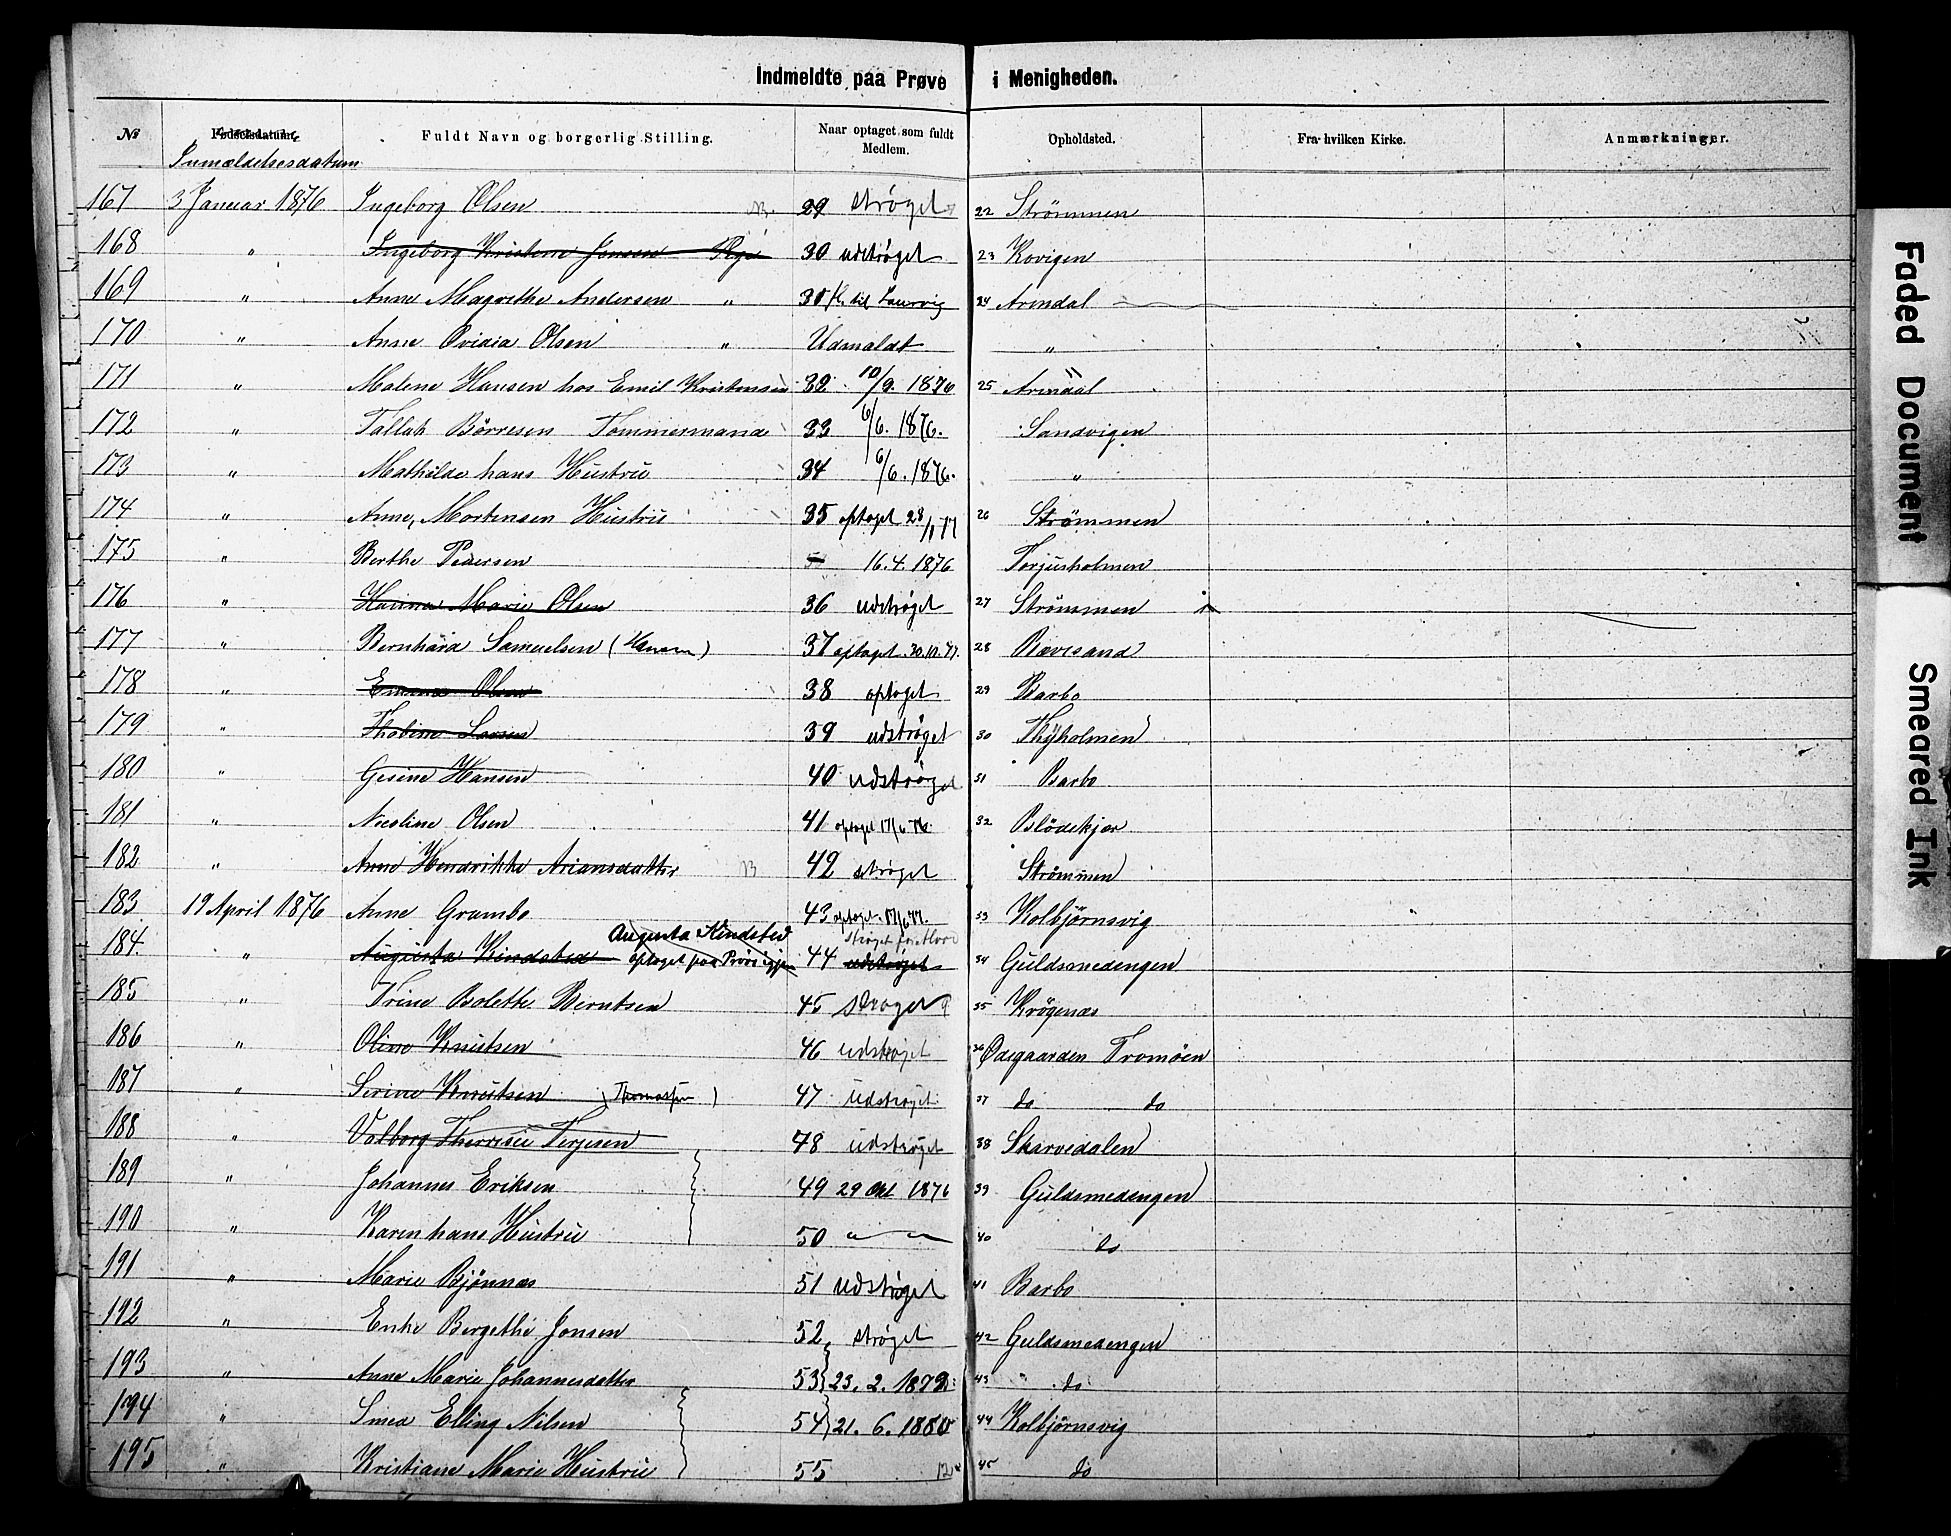 Indmeldte paa Prøve i Menigheden.
№ Fødselsdatum. Fuldt Navn og borgerlig Stilling. Naar optaget som fuldt Medlem. Opholdsted. Fra hvilken Kirke. Anmærkninger.
Inmældelsesdatum
167 3 Januar 1876 Ingeborg Olsen 29 strøget 22 Strömmen
168 " Ingeborg Kristene Jensen Rye 30 udstrøget 23 Kovigen
169 " Anne Magrethe Andersen " 31 fl. til Laurvig 24 Arendal
170 " Anne Ovidia Olsen " Udmaldt "
171 " Malene Hansen hos Emil Kristensen 32 10/9. 1876 25 Arendal
172 " Tallak Börresen Tommermand 33 6/6. 1876. Sandvigen
173 " Mathilde hans Hustru 34 6/6. 1876. "
174 " Anne, Mortensen Hustru 35 optaget 28/1 77 26 Strömmen
175 " Berthe Pedersen 16.4. 1876 Torjusholmen
176 " Hanna Marie Olsen 36 udstrøget 27 Strömmen
177 " Bernhard Samuelsen (Hansen) 37 optaget 30.10.77. 28 Rævesand
178 " Emma Olsen 38 optaget 29 Barbo
179 " Thobine Larsen 39 udstrøget 30 Thyholmen
180 " Gesine Hansen 40 udstrøget 31 Barbo
181 " Nicoline Olsen 41 optaget 17/6 76. 32 Blödekjær
182 " Anne Hendrikke Ariansdatter B 42 strøget Strömmen
183 19 April 1876 Anne Grambo 43 optaget 17/6 77. 33 Kolbjörnsvig
Augusta Kindsted strøget for Hor
184. " Augusta Kindsted optaget paa Prøve igjen 44 udstrøget 34 Guldsmedengen
185 " Trine Bolette Berntsen 45 strøget 35 Krögenæs
186 " Oline Knutsen 46 udstrøget 36 Ødegaarden Tromöen
187 " Serine Knutsen (Thomassen) 47 udstrøget 37 do do
188 " Valborg Therresie Terjesen 48 udstrøget 38 Skarvedalen
189 " Johannes Eriksen 49 29 Okt 1876 39 Guldsmedengen
190 " Karen hans Hustru 50 " " 40 do
191 " Marie Bjönnæs 51 udstrøget 41 Barbo
192 " Enke Bergethe Jonsen 52 strøget 42 Guldsmedengen
193 " Anne Marie Johannesdatter 53 23. 2. 1879 43 " do
194 " Smed Elling Nilsen 54 21. 6. 1880 44 Kolbjörnsvig
195 " Kristiane Marie Hustru 55 12 45 do
Faded Document
Smeared Ink